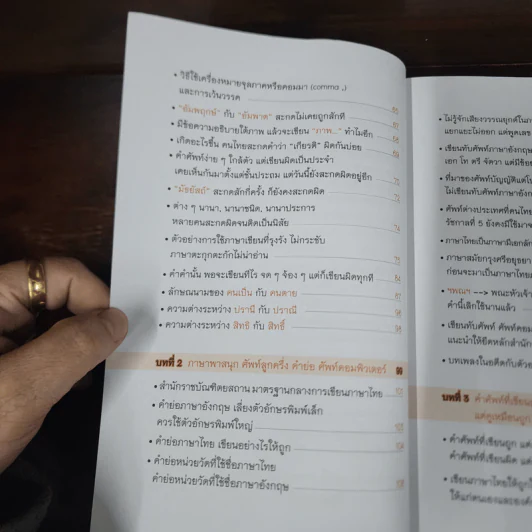 • วิธีใช้เครื่องหมายจุลภาคหรือคอมมา (comma ,)
และการเว้นวรรค
• "อัมพฤกษ์" กับ "อัมพาต" สะกดไม่เคยถูกสักที
• มีข้อความอธิบายใต้ภาพ แล้วจะเขียน "ภาพ..." ทำไมอีก
• เกิดอะไรขึ้น คนไทยสะกดคำว่า "เกียรติ" ผิดกันบ่อย
• คำศัพท์ง่าย ๆ ใกล้ตัว แต่เขียนผิดเป็นประจำ
เคยเห็นกันมาตั้งแต่ชั้นประถม แต่วันนี้ยังสะกดผิดอยู่อีก
• "มัธยัสถ์" สะกดสักกี่ครั้ง ก็ยังคงสะกดผิด
• ต่าง ๆ นานา, นานาชนิด, นานาประการ
หลายคนสะกดผิดจนติดเป็นนิสัย
• ตัวอย่างการใช้ภาษาเขียนที่รุงรัง ไม่กระชับ
ภาษาตะกุกตะกักไม่น่าอ่าน
• คำคำนั้น พอจะเขียนทีไร จด ๆ จ้อง ๆ แต่ก็เขียนผิดทุกที
• ลักษณนามของ คนเป็น กับ คนตาย
• ความต่างระหว่าง ปรานี กับ ปราณี
• ความต่างระหว่าง สิทธิ กับ สิทธิ์
บทที่ 2 ภาษาพาสนุก ศัพท์ลูกครึ่ง คำย่อ ศัพท์คอมพิวเตอร์ 99
• สำนักราชบัณฑิตยสถาน มาตรฐานกลางการเขียนภาษาไทย
• คำย่อภาษาอังกฤษ เลี่ยงตัวอักษรพิมพ์เล็ก
ควรใช้ตัวอักษรพิมพ์ใหญ่
• คำย่อภาษาไทย เขียนอย่างไรให้ถูก
• คำย่อหน่วยวัดที่ใช้ชื่อภาษาไทย
คำย่อหน่วยวัดที่ใช้ชื่อภาษาอังกฤษ
• ไม่รู้จักเสียงวรรณยุกต์ในภา
แยกแยะไม่ออก แต่พูดเลข
• เขียนทับศัพท์ภาษาอังกฤษ
เอก โท ตรี จัตวา แต่มีข้อย
• ที่มาของศัพท์บัญญัติแต่โบ
ไม่เขียนทับศัพท์ภาษาอังก
• ศัพท์ต่างประเทศที่คนไทย
รัชกาลที่ 5 ยังคงใช้มาจ
• ภาษาไทยเป็นภาษามีเอกลัก
• ภาษาสมัยกรุงศรีอยุธยา
ก่อนจะมาเป็นภาษาไทย
• ฯพณฯ --> พณะหัวเจ้า
คำนี้เลิกใช้นานแล้ว
• เขียนทับศัพท์ ศัพท์คอม
แนะนำให้ยึดหลักสำนัก
• บทเพลงในอดีตกับตัวอ
บทที่ 3 คำศัพท์ที่เขียน
แต่ดูเหมือนถูก
• คำศัพท์ที่เขียนถูก แต่
คำศัพท์ที่เขียนผิด แต่
• เขียนภาษาไทยให้ถูก
ให้แก่ตนเองและองค์